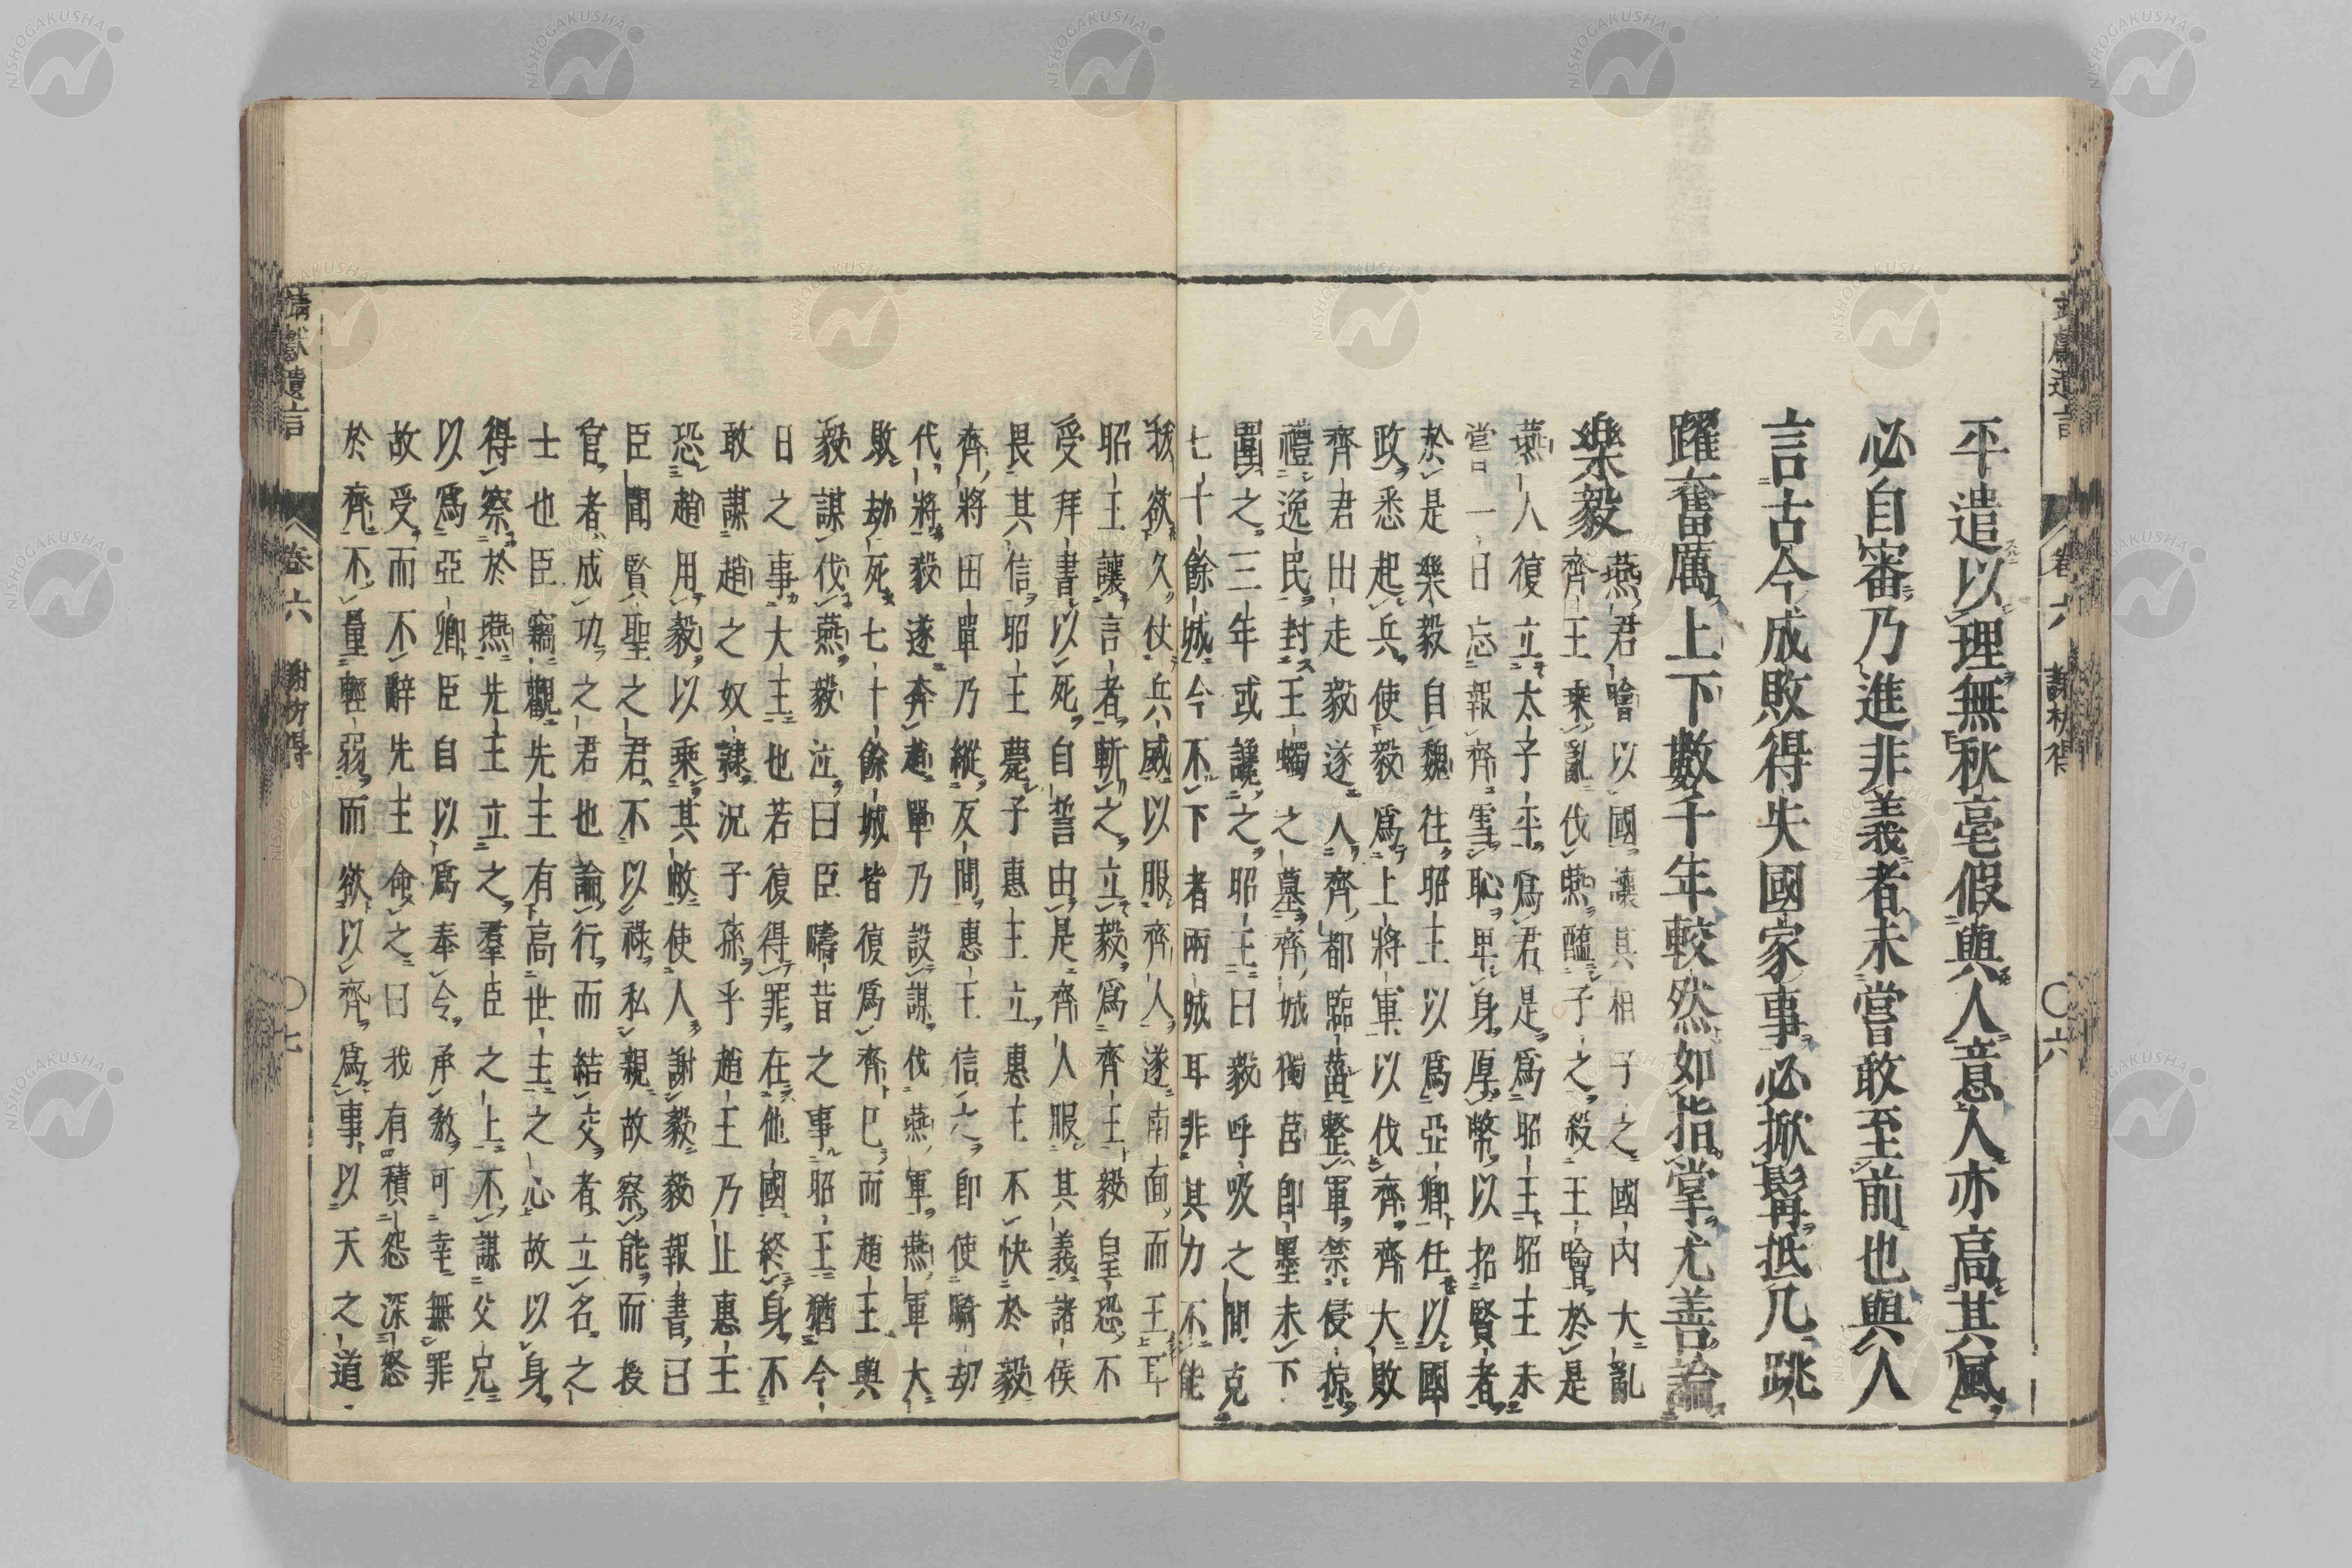 靖獻遺言 卷六 謝枋得 〇六
平遣以理無秋毫假與人意人亦高其風
必自審乃進非義者未嘗敢至前也與人
言古今成敗得失國家事必掀髯抵几跳
躍奮厲上下數千年較然如指掌尤善論
樂毅
燕君噲以國讓其相子之國内大亂
齊王乘亂伐燕醢子之殺王噲於是
燕人復立太子平爲君是爲昭王昭王未
嘗一日忘報齊雪恥卑身厚幣以招賢者
於是樂毅自魏往昭王以爲亞卿任以國
政悉起兵使毅爲上將軍以伐齊齊大敗
齊君出走毅遂入齊都臨菑整軍禁侵掠
禮逸民封王蠋之墓齊城獨莒卽墨未下
圍之三年或讒之昭王曰毅呼吸之間克
七十餘城今不下者兩城耳非其力不能
拔欲久仗兵威以服齊人遂南面而王耳
昭王讓言者斬之立毅爲齊王毅皇恐不
受拜書以死自誓由是齊人服其義諸侯
畏其信昭王薨子惠王立惠王不快於毅
齊將田單乃縱反間惠王信之卽使騎劫
代將毅遂奔趙單乃設謀伐燕軍燕軍大
敗劫死七十餘城皆復爲齊已而趙王與
毅謀伐燕毅泣曰臣疇昔之事昭王猶今
日之事大王也若復得罪在他國終身不
敢謀趙之奴隷況子孫乎趙王乃止惠王
恐趙用毅以乘其敝使人謝毅毅報書曰
臣聞賢聖之君不以祿私親故察能而授
官者成功之君也論行而結交者立名之
士也臣竊觀先王有高世主之心故以身
得察於燕先王立之羣臣之上不謀父兄
以爲亞卿臣自以爲奉令承教可幸無罪
故受而不辭先王命之曰我有積怨深怒
於齊不量輕弱而欲以齊爲事以天之道
靖獻遺言 卷六 謝枋得 〇七
NISHOGAKUSHA